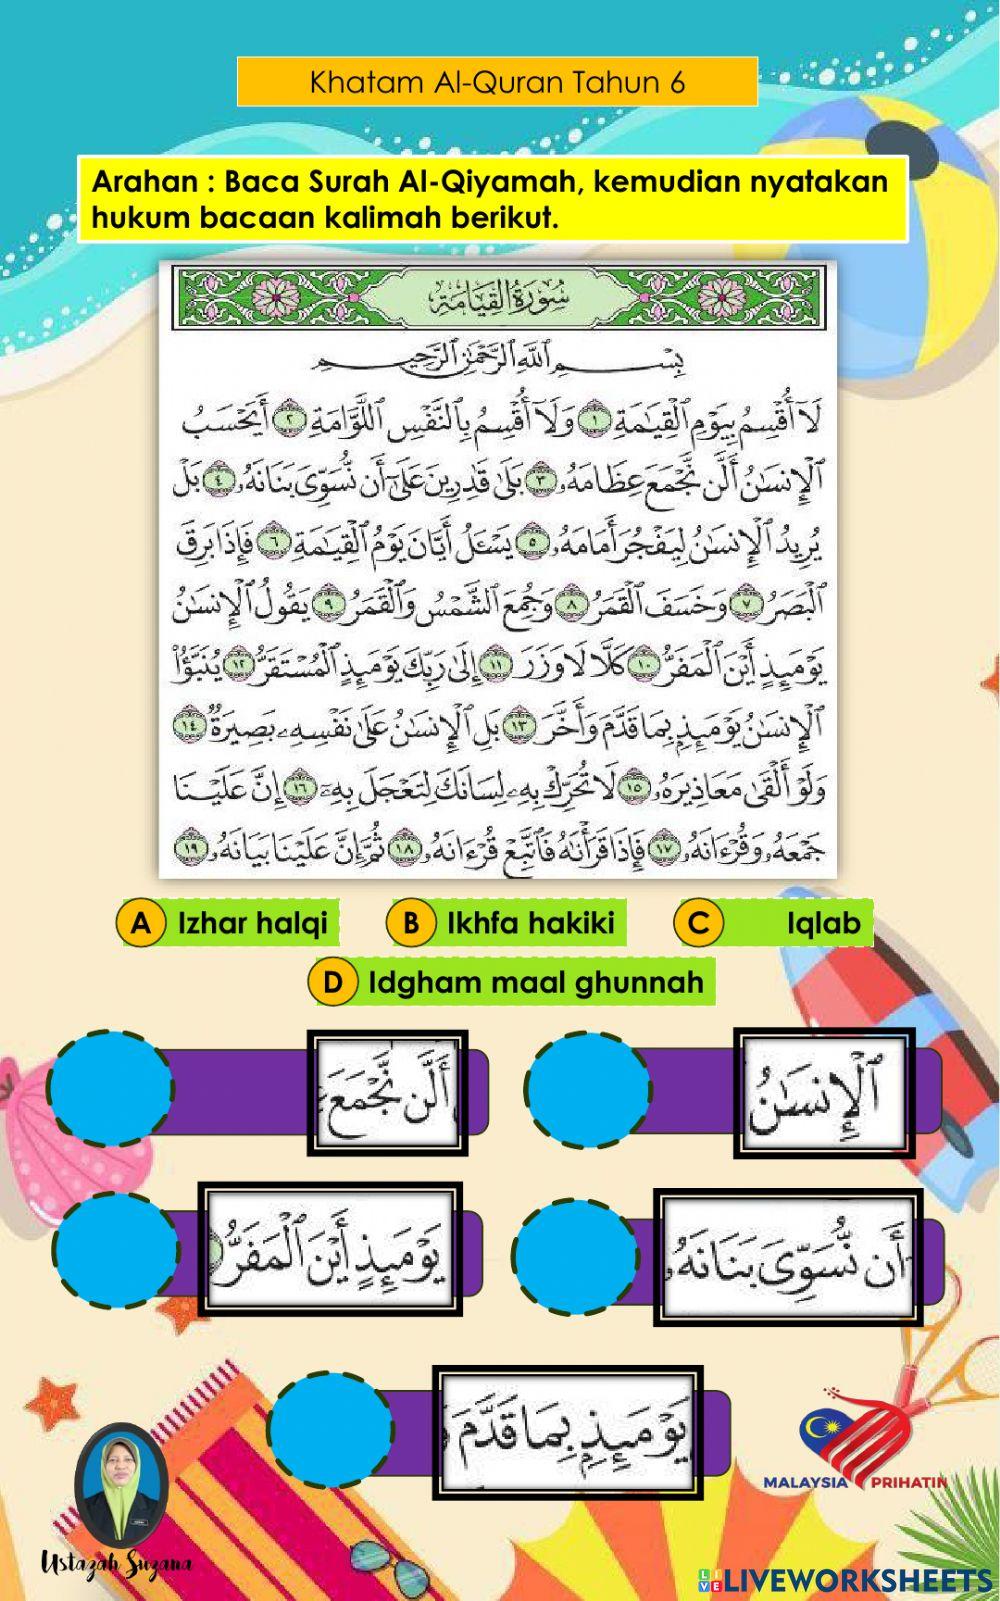 Khatam Al-Quran Tahun 6
Arahan : Baca Surah Al-Qiyamah, kemudian nyatakan
hukum bacaan kalimah berikut.
سُورَةُ الْقِيَامَةِ
بِسْمِ ٱللَّهِ ٱلرَّحْمَٰنِ ٱلرَّحِيمِ
لَآ أُقْسِمُ بِيَوْمِ ٱلْقِيَٰمَةِ ١ وَلَآ أُقْسِمُ بِٱلنَّفْسِ ٱللَّوَّامَةِ ٢ أَيَحْسَبُ
ٱلْإِنسَٰنُ أَلَّن نَّجْمَعَ عِظَامَهُۥ ٣ بَلَىٰ قَٰدِرِينَ عَلَىٰٓ أَن نُّسَوِّىَ بَنَانَهُۥ ٤ بَلْ
يُرِيدُ ٱلْإِنسَٰنُ لِيَفْجُرَ أَمَامَهُۥ ٥ يَسْـَٔلُ أَيَّانَ يَوْمُ ٱلْقِيَٰمَةِ ٦ فَإِذَا بَرِقَ
ٱلْبَصَرُ ٧ وَخَسَفَ ٱلْقَمَرُ ٨ وَجُمِعَ ٱلشَّمْسُ وَٱلْقَمَرُ ٩ يَقُولُ ٱلْإِنسَٰنُ
يَوْمَئِذٍ أَيْنَ ٱلْمَفَرُّ ١٠ كَلَّا لَا وَزَرَ ١١ إِلَىٰ رَبِّكَ يَوْمَئِذٍ ٱلْمُسْتَقَرُّ ١٢ يُنَبَّؤُا۟
ٱلْإِنسَٰنُ يَوْمَئِذٍۭ بِمَا قَدَّمَ وَأَخَّرَ ١٣ بَلِ ٱلْإِنسَٰنُ عَلَىٰ نَفْسِهِۦ بَصِيرَةٌ ١٤
وَلَوْ أَلْقَىٰ مَعَاذِيرَهُۥ ١٥ لَا تُحَرِّكْ بِهِۦ لِسَانَكَ لِتَعْجَلَ بِهِۦٓ ١٦ إِنَّ عَلَيْنَا
جَمْعَهُۥ وَقُرْءَانَهُۥ ١٧ فَإِذَا قَرَأْنَٰهُ فَٱتَّبِعْ قُرْءَانَهُۥ ١٨ ثُمَّ إِنَّ عَلَيْنَا بَيَانَهُۥ ١٩
A Izhar halqi B Ikhfa hakiki C Iqlab
D Idgham maal ghunnah
أَلَّن نَّجْمَعَ
ٱلْإِنسَٰنُ
يَوْمَئِذٍ أَيْنَ ٱلْمَفَرُّ
أَن نُّسَوِّىَ بَنَانَهُۥ
يَوْمَئِذٍۭ بِمَا قَدَّمَ
MALAYSIA PRIHATIN
Ustazah Suzana
LIVEWORKSHEETS